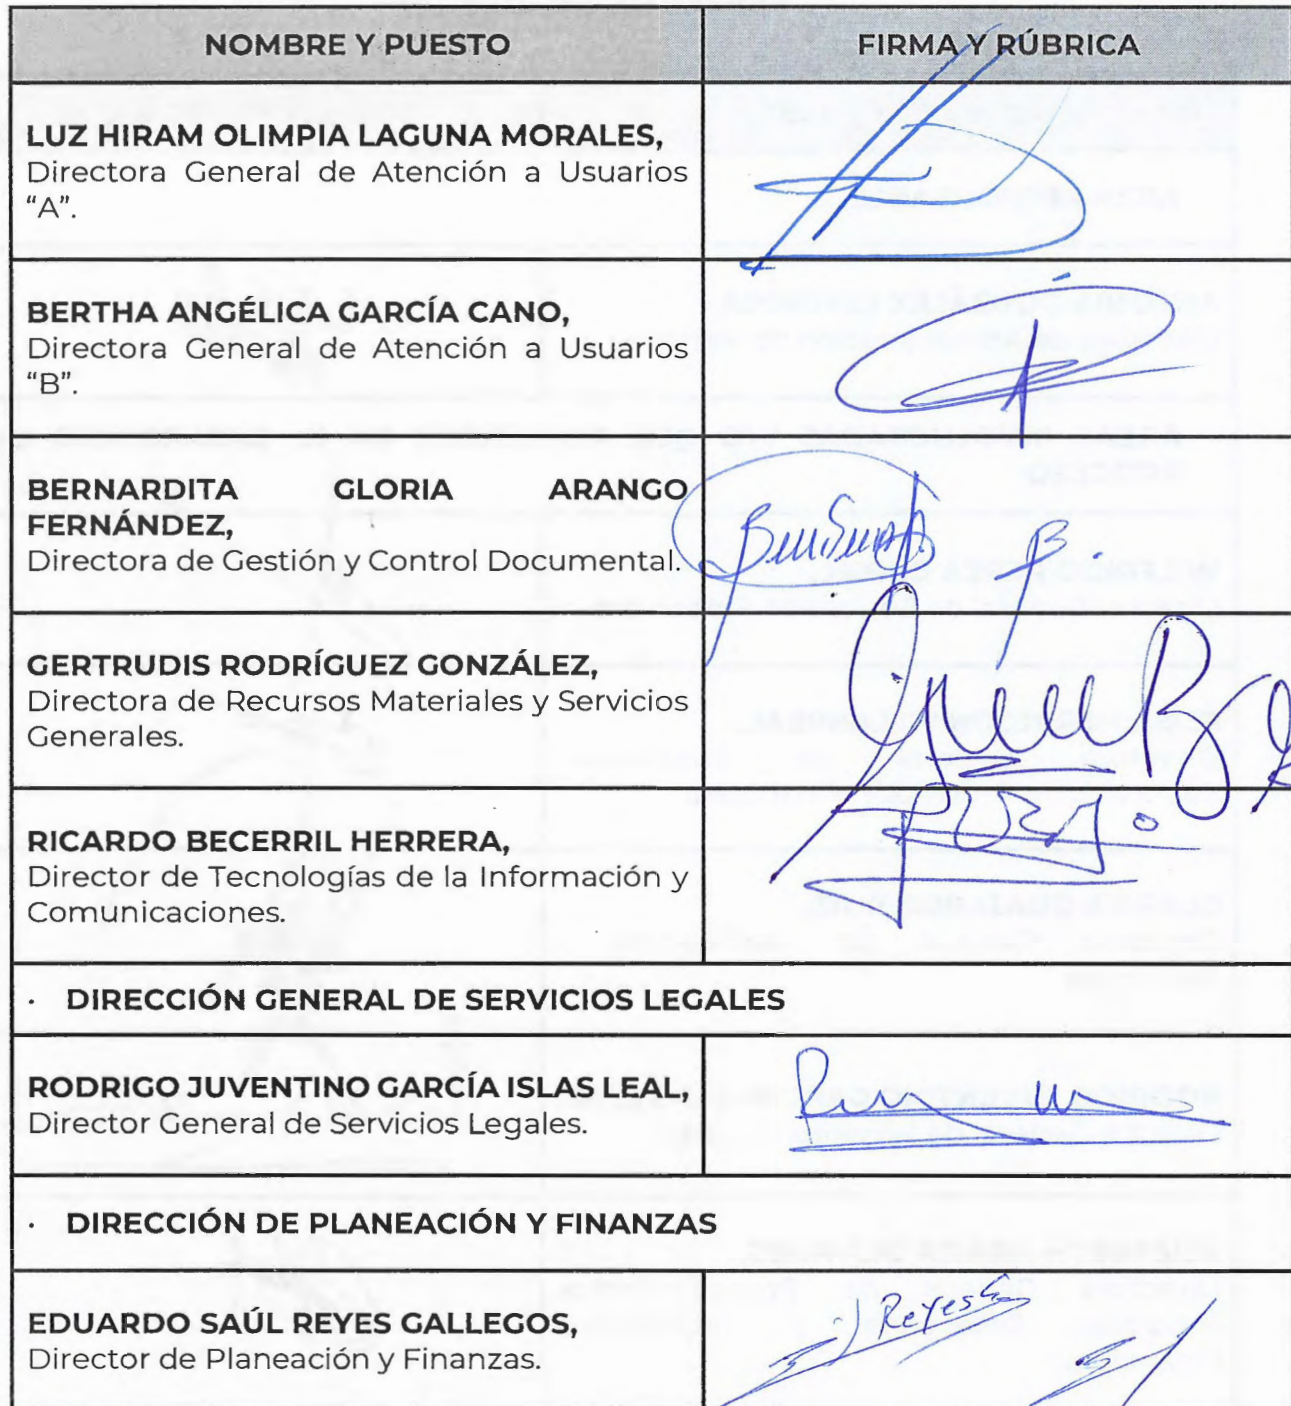 NOMBRE Y PUESTO
FIRMA Y RÚBRICA
LUZ HIRAM OLIMPIA LAGUNA MORALES,
Directora General de Atención a Usuarios
“A”.
BERTHA ANGÉLICA GARCÍA CANO,
Directora General de Atención a Usuarios
“B”.
BERNARDITA GLORIA ARANGO
FERNÁNDEZ,
Directora de Gestión y Control Documental.
GERTRUDIS RODRÍGUEZ GONZÁLEZ,
Directora de Recursos Materiales y Servicios
Generales.
RICARDO BECERRIL HERRERA,
Director de Tecnologías de la Información y
Comunicaciones.
· DIRECCIÓN GENERAL DE SERVICIOS LEGALES
RODRIGO JUVENTINO GARCÍA ISLAS LEAL,
Director General de Servicios Legales.
· DIRECCIÓN DE PLANEACIÓN Y FINANZAS
EDUARDO SAÚL REYES GALLEGOS,
Director de Planeación y Finanzas.
Reyes G